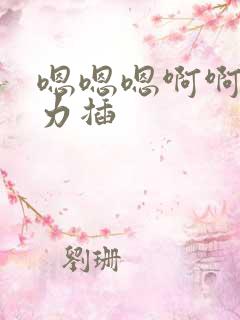 嗯嗯嗯啊啊
力插
劉珊